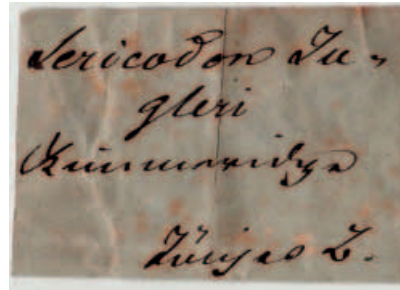 Sericodon Ju-
gleri
Kimmeridge
Tönjes B.